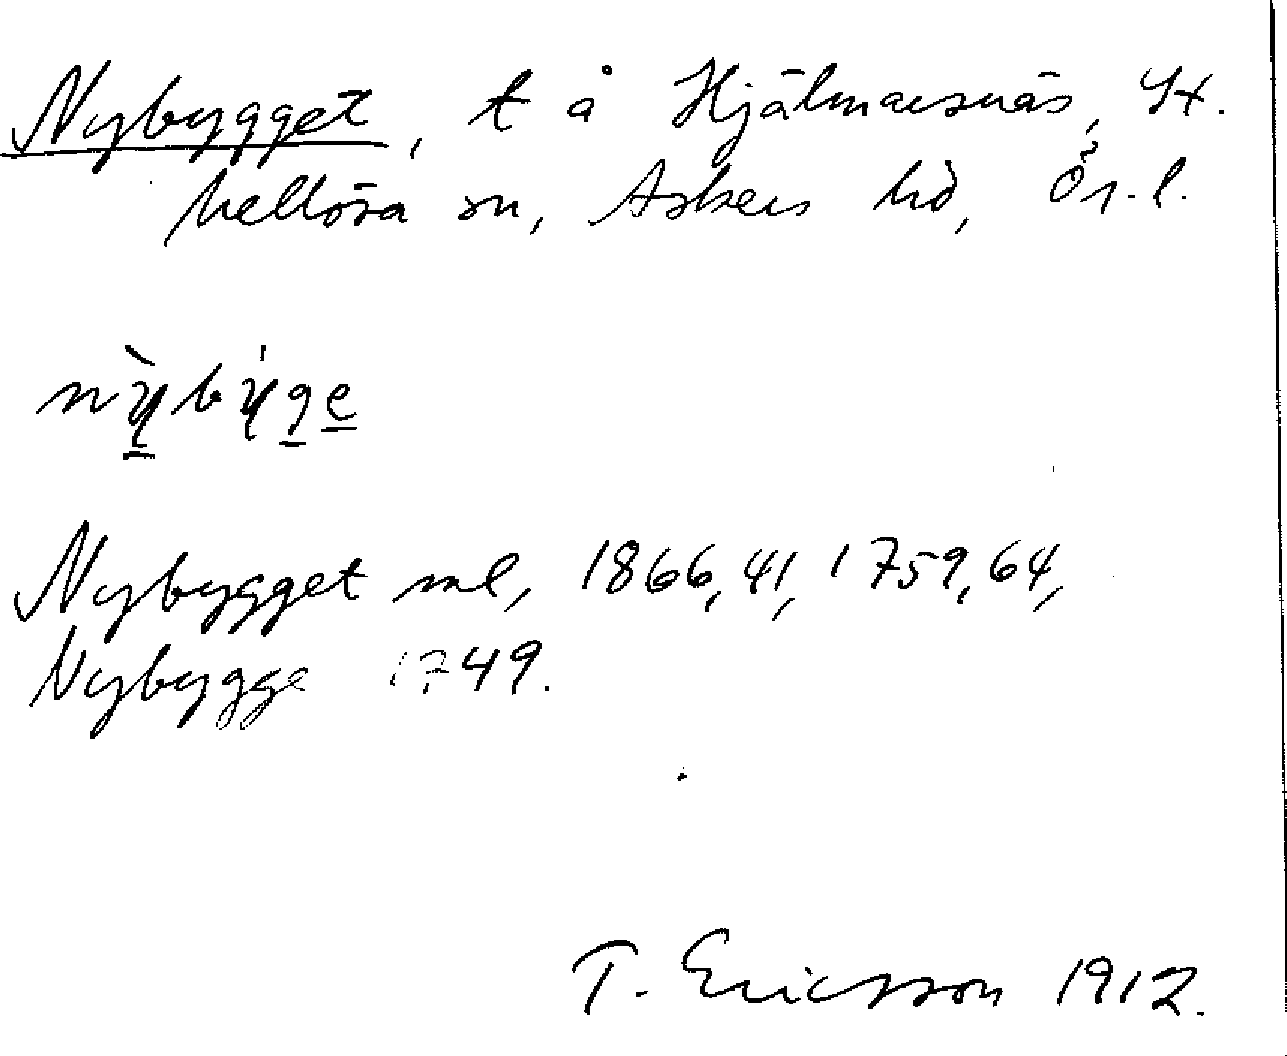 Nybygget, t å Hjälmarsnäs, St.
hellösa sn, Askers hd, Ör. l.
nỳbýge
Nybygget ml, 1866, 41, 1759, 64,
Nybygge 1749.
T. Ericsson 1912.